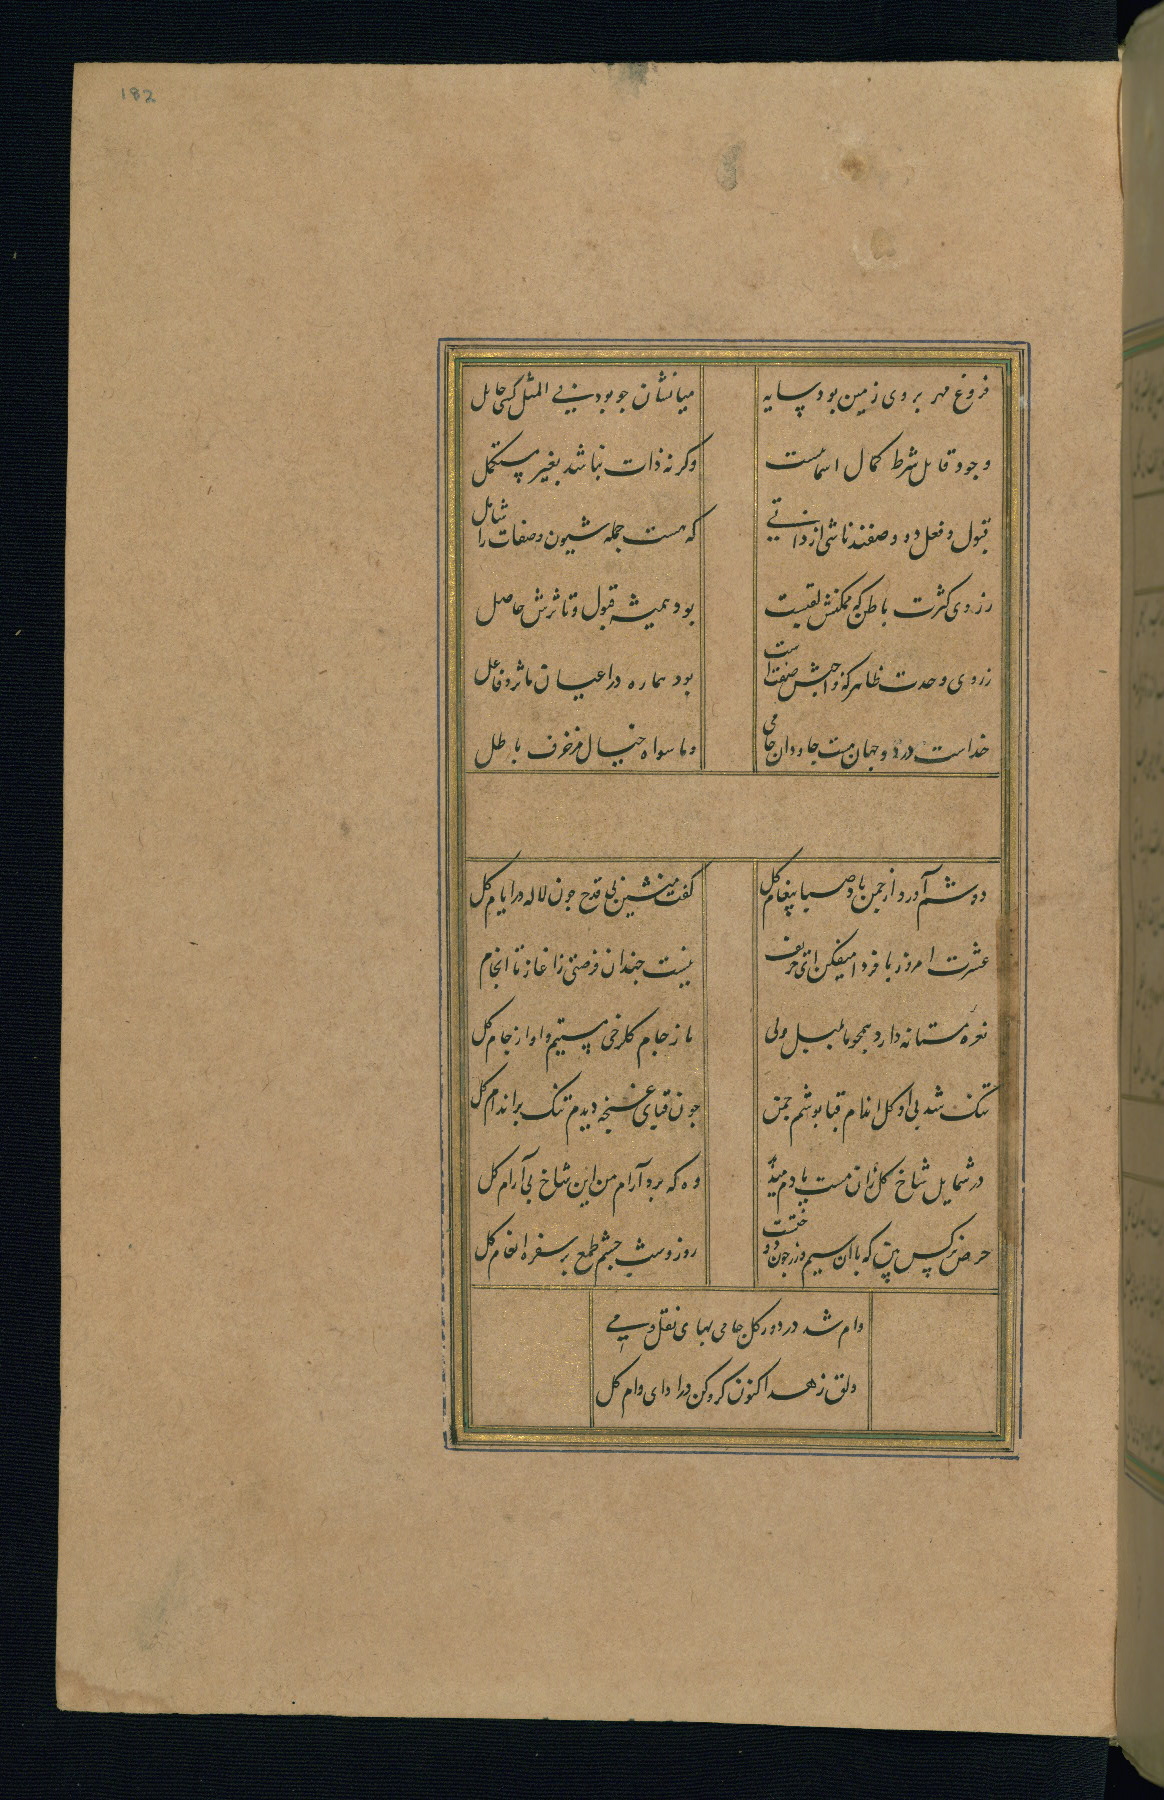 182
فروغ مهر بروی زمین بود سایه
میانشان جو بود فی المثل کسی حایل
وجود قابل شرط کمال اسماست
وکرنه ذات نباشد بغیر مستکمل
قبول و فعل دو وصفند ناشی از ذاتی
که هست جمله شیون و صفات را شامل
زروی کثرت باطن که ممکنش لقبست
بود همیشه قبول و تاثرش حاصل
زروی وحدت ظاهر که واجبش صفت است
بود هماره در اعیان ماثر و فاعل
خداست در دو جهان هست جاودان جامی
وما سواه خیال مزخرف باطل
دوشم آورد از جمن باد صبا پیغام کل
کفت منشین بی قدح جون لاله در ایام کل
عشرت امروز با فردا میفکن ای حریف
نیست جندان فرصتی زاغاز تا انجام
نعره مستانه دارد همجو ما بلبل ولی
ما زجام کلرخی مستیم و او از جام کل
تنک شد بی او کل اندام قبا پوشم جمن
جون قبای غنجه دیدم تنک بر اندام کل
در شمایل شاخ کل زان مست یادم میدهد
وه که برد آرام من این شاخ بی آرام کل
حرص نرکس بین که با ان سیم و زر جون دوختست
روز و شب جشم طمع بر سفره انعام کل
وام شد در دور کل جامی بهای نقل و می
دلق زهد اکنون کرو کن در ادای وام کل